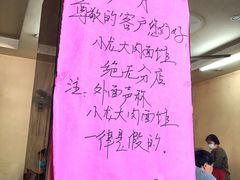 尊敬的客户您们好,
小龙大肉面馆
绝无分店
注:外面声称
小龙大肉面馆
一律是假的.